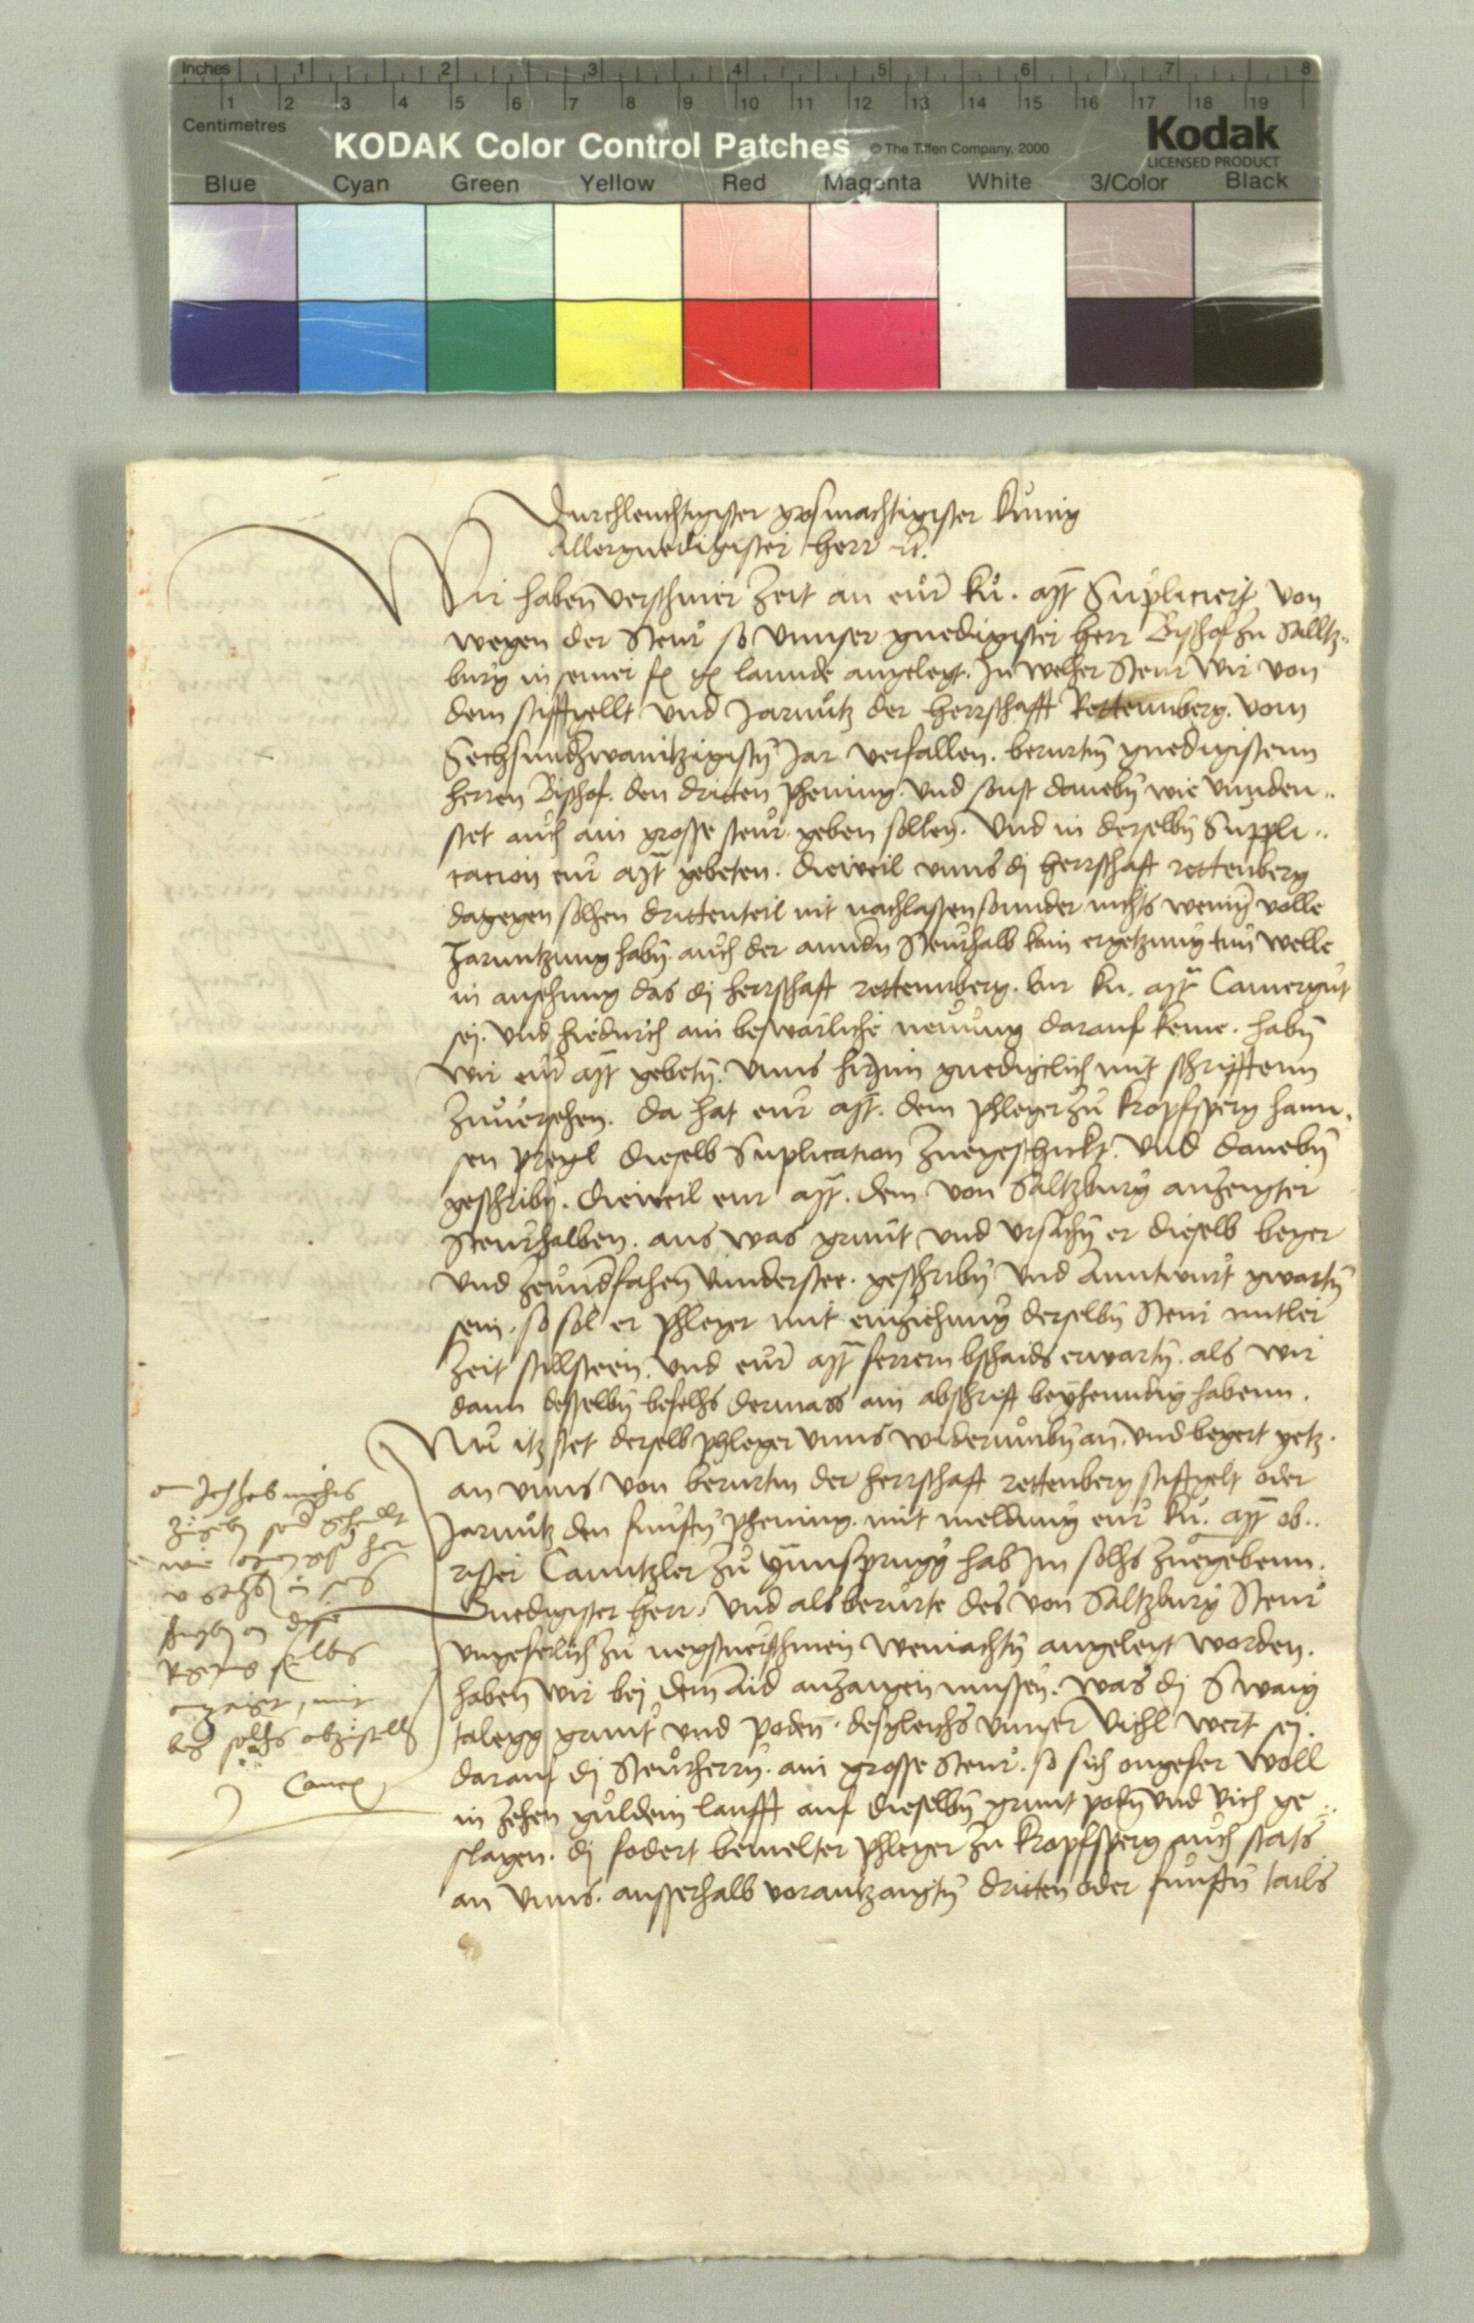 Inches 1 2 3 4 5 6 7 8
1 2 3 4 5 6 7 8 9 10 11 12 13 14 15 16 17 18 19
Centimetres
KODAK Color Control Patches © The Tiffen Company, 2000 Kodak
LICENSED PRODUCT
Blue Cyan Green Yellow Red Magenta White 3/Color Black
Durchleuchtigister grosmachtigister Kunig
Allergnedigister herr rc.
Wir haben verschiner Zeit an eur ku. Mt Supliciert von
wegen der Steur so Unnser gnedigister herr Bischof zu Salltz..
burg in seiner f g lannde angelegt. In welher Steur Wir von
dem stifftgellt und Jarnutz der herrschafft Rettennberg. vom
Sechsundzwanitzigistn Jar verfallen. berurtm gnedigistenn
herren Bischof. den dritten phening. und sonst danebn wie unnden..
stet auch ain grosse steur geben sollen. Und in derselbn Suppli..
cacion eur Mt gebeten. dieweil unns dj herrschaft rettenberg
dagegen solhen drittenteil nit nachlassen sonnder nichts weniger volle
Jarnutzung habn. auch der anndn Steurhalb kain ergetzung tun welle
in ansehung das dj herrschaft rettennberg. Eur ku. Mt Camergut
sej. Und hiedurch ain beswärliche neuung darauf keme. habn
wir eur Mt gebetn. Unns hirjnn gnedigclich mit schrifftenn
zuversehen. Da hat eur Mt. dem Phleger zu Kropfsperg hann.
sen dieselb Suplication zuegeschickt. Und danebn
geschribn. Dieweil eur Mt. dem von Saltzburg anzeugter
Steurhalben. aus was grunt und ursachn er dieselb beger
und zuemdfahen unnderstee. geschribn und Anntwurt gwartn
sein. so sol er Phleger mit einziehung derselbn Steur mitler
Zeit stillsteen. und eur Mt ferrern bschaids erwartn. als wir
dann desselbn befelhs dermass ain abschrift beyhenndig habenn.
Nu itz stet derselb Phleger unns widerumbn an. und begert yetz.
an unns von berurtm der herrschaft rettenberg stiftgelt oder
Jarnutz den funftn Phening. mit meldung eur ku. Mt ob..
rister Canntzler zu Ynnsprugg hab Im solhs zuegebenn.
Gnedigister herr. Und als berurte des von Saltzburg Steur
ungeferlich zu negstverschinen Weinachtn angelegt worden.
haben wir bej dem Aid anzaigen muessen. was dj Swaig
talegg grunt und poden. desgleichs unnser Vichl wert sej.
darauf dj Steurherrn. ain grosse Steur. so sich ongefer Woll
in zehen guldein laufft auf dieselbn grunt podn und Vich ge..
slagen. dj fodert bemelter Phleger zu Kropfsperg auch stats
an Unns. ausserhalb vorantzaigtn dritten oder funftn tails
Ich hab nichts
wie
selbs
anzaigt, mit
solhs abzestelln
Cancz